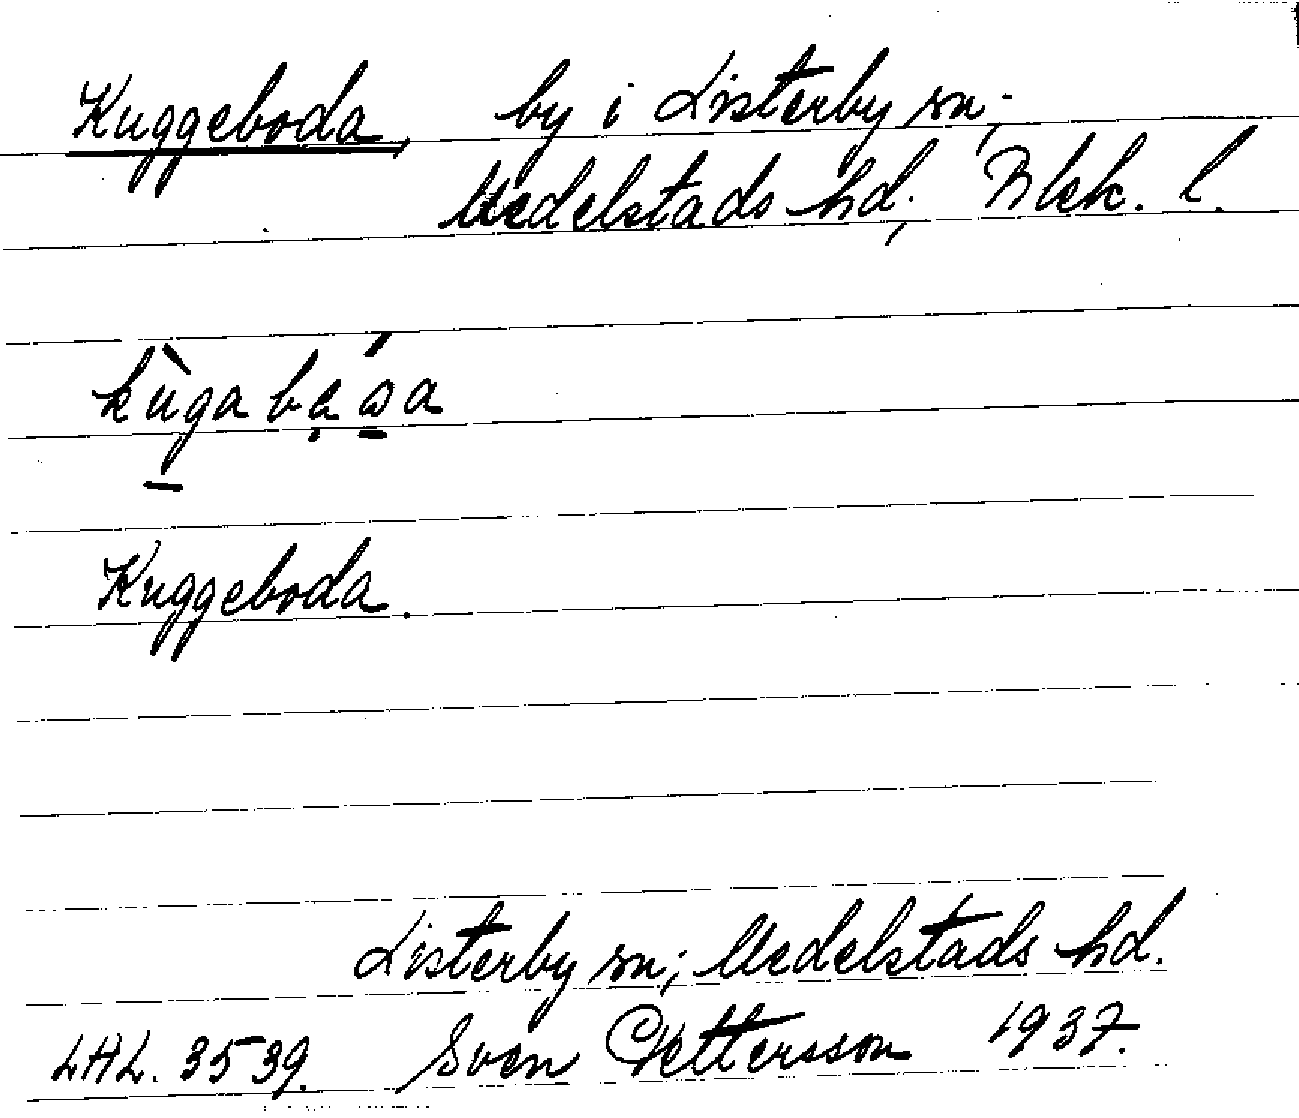 Kuggeboda, by i Listerby sn;
Medelstads hd; Blek. l.
Kuggeboda.
Listerby sn; Medelstads hd.
LAL. 3539. Sven Pettersson 1937.